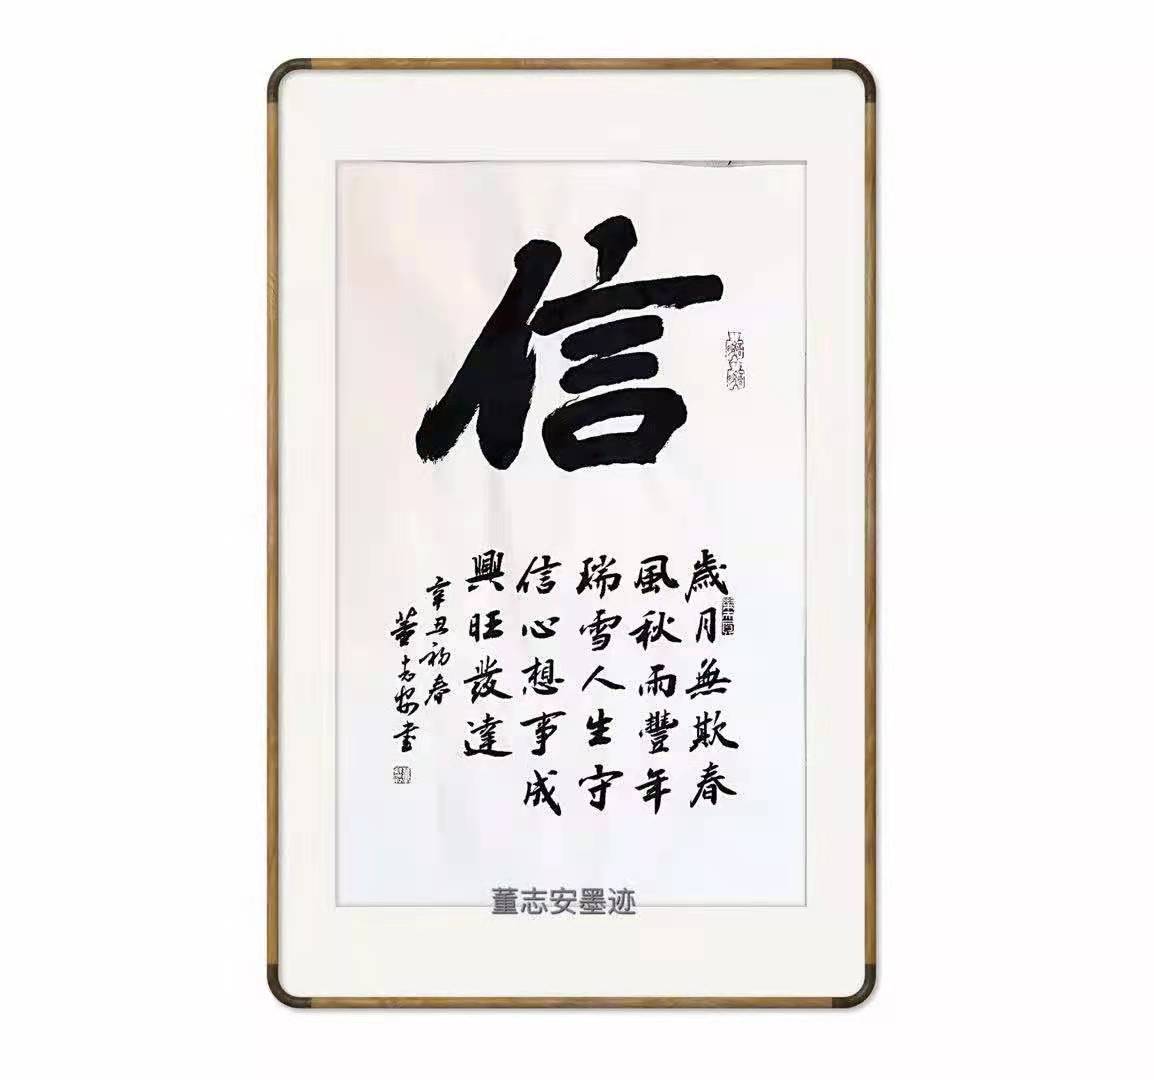 信
歲月無欺春
風秋雨豐年
瑞雪人生守
信心想事成
興旺發達
辛丑初春
董志安书
董志安墨迹